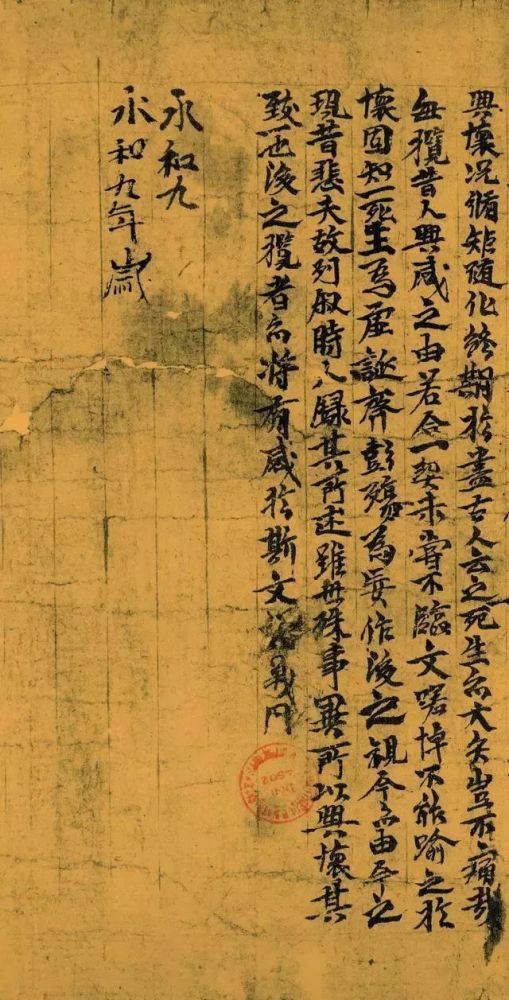 興懷况脩矩随化終期於盡古人云之死生亦大矣豈不痛哉
每攬昔人興感之由若合一契未甞不臨文嗟悼不能踰之於
懷固知一死生為虛誕齊彭殤為妄作後之視今亦由今之
視昔悲夫故列叙時人録其所述雖世殊事異所以興懷其
致一也後之攬者亦將有感於斯文
永和九
永和九年歲